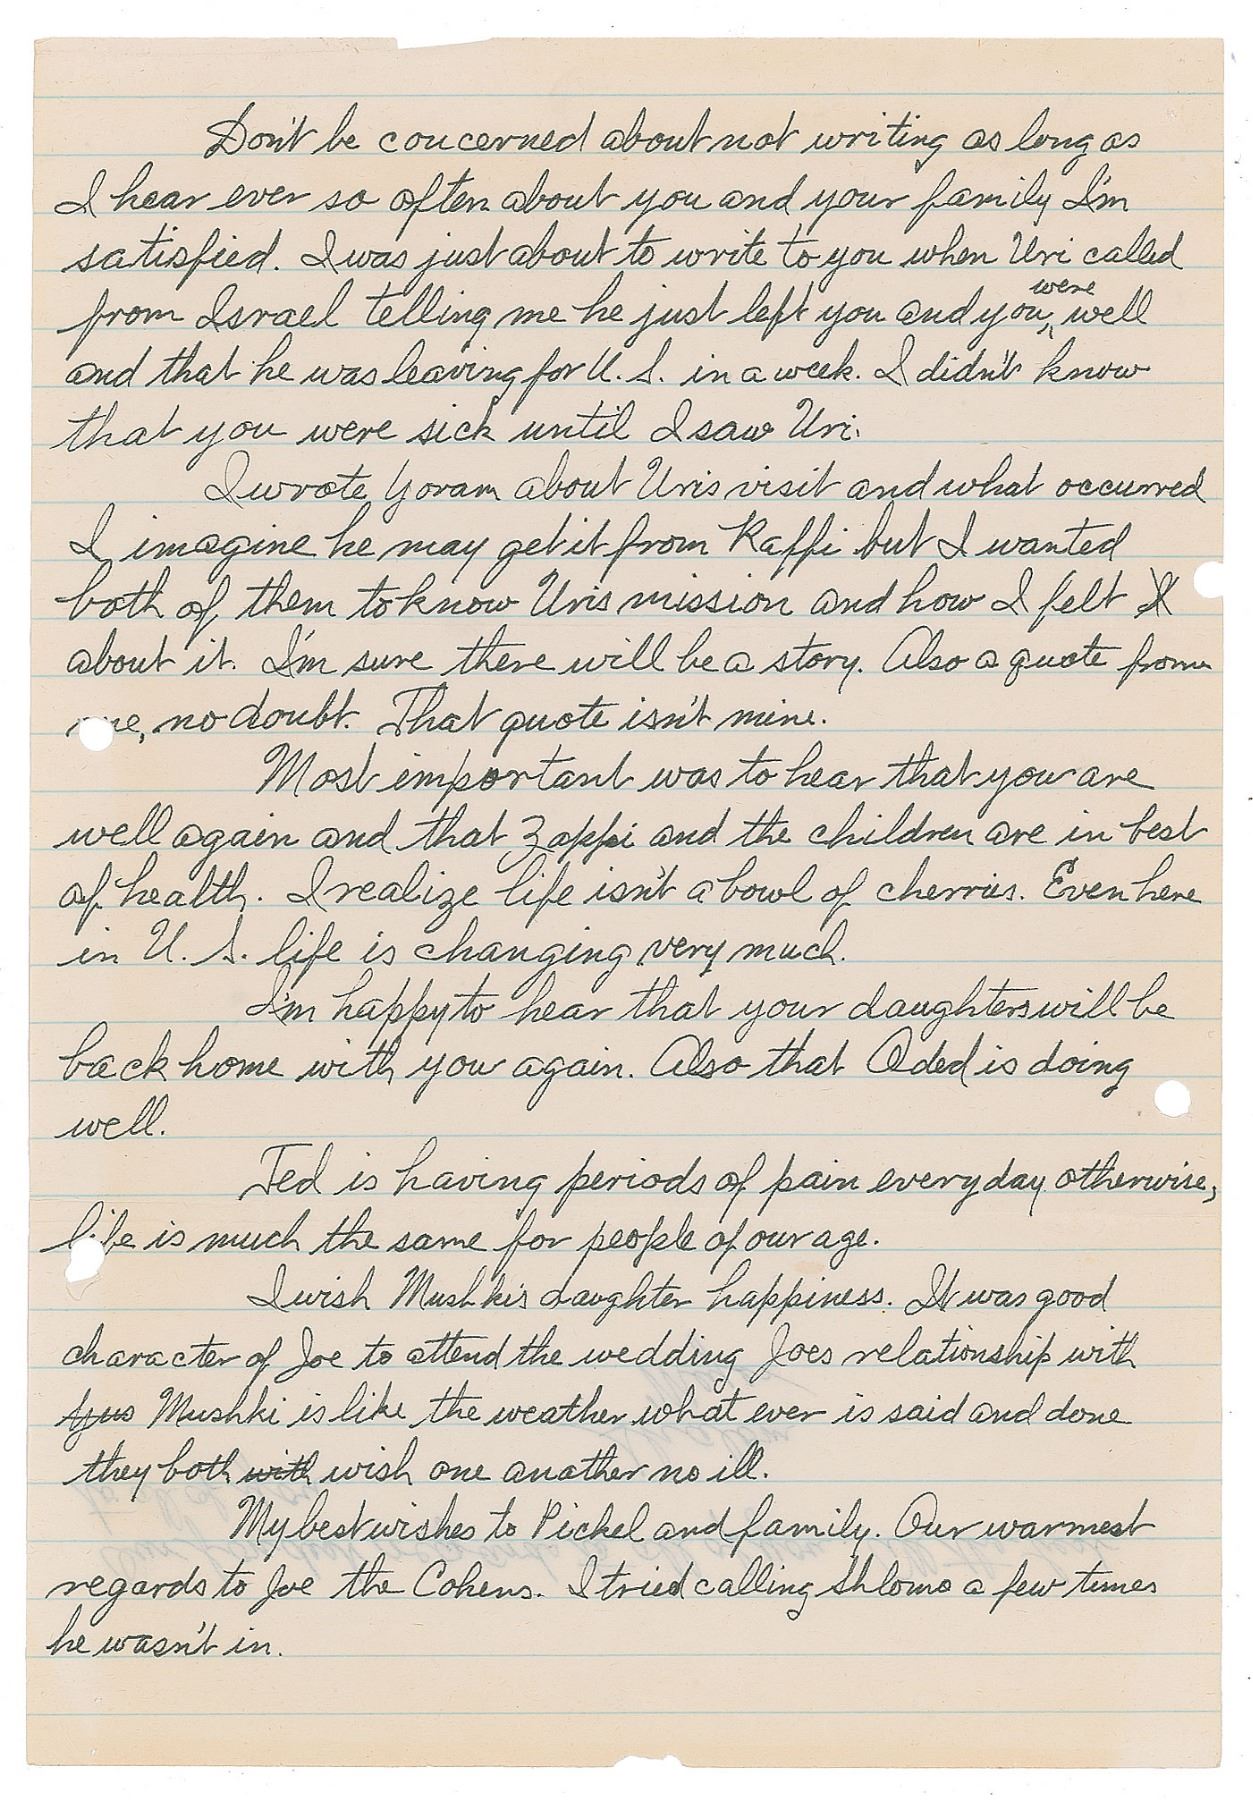 Don't be concerned about not writing as long as
I hear ever so often about you and your family I'm
satisfied. I was just about to write to you when Uri called
from Israel telling me he just left you and you were well
and that he was leaving for U. S. in a week. I didn't know
that you were sick until I saw Uri.
I wrote Yoram about Uris visit and what occurred
I imagine he may get it from Raffi but I wanted
both of them to know Uris mission and how I felt
about it. I'm sure there will be a story. Also a quote from
me, no doubt. That quote isn't mine.
Most important was to hear that you are
well again and that Zappi and the children are in best
of health. I realize life isn't a bowl of cherries. Even here
in U. S. life is changing very much.
I'm happy to hear that your daughters will be
back home with you again. Also that Oded is doing
well.
Ted is having periods of pain everyday otherwise,
life is much the same for people of our age.
I wish Mushkis daughter happiness. It was good
character of Joe to attend the wedding Joes relationship with
Mushki is like the weather what ever is said and done
they both with wish one another no ill.
My best wishes to Pickel and family. Our warmest
regards to Joe the Cohens. I tried calling Shlomo a few times
he wasn't in.